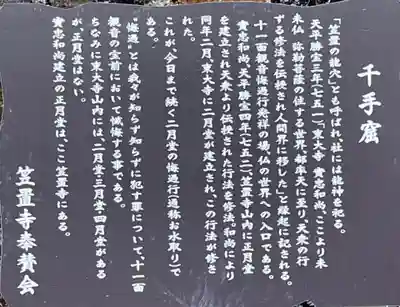 千手窟
「笠置の龍穴」とも呼ばれ、社には龍神を祀る。
天平勝宝三年(七五一)、東大寺 實忠和尚、ここより未
来仏 弥勒菩薩の住する世界、都率天に至り、天衆の行
ずる修法を伝授され人間界に移した」と縁起に記される。
十一面観音悔過行発祥の場、仏の世界への入口である。
實忠和尚、天平勝宝四年(七五二)、笠置寺山内に正月堂
を建立され天衆より伝授された行法を修法。和尚により
同年二月、東大寺に二月堂が建立され、この行法が修さ
れた。
これが、今日まで続く二月堂の悔過行(通称お水取り)で
ある。
"悔過"とは我々が知らず知らずに犯す罪について、十一面
観音の宝前において懺悔する事である。
ちなみに東大寺山内には、二月堂・三月堂・四月堂がある
が、正月堂はない。
實忠和尚建立の正月堂は、ここ笠置寺にある。
笠置寺奉賛会